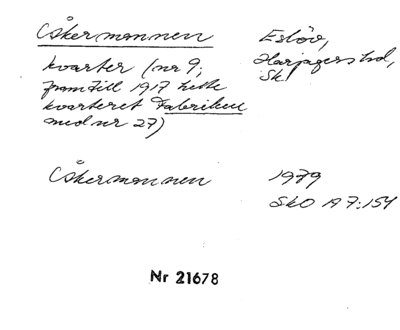 Åkermannen Eslöv,
kvarter (nr 9; Harjagers hd,
fram till 1917 hette Sk.
kvarteret Fabriken
med nr 27)
Åkermannen 1979
SkO A 7:154
Nr 21678